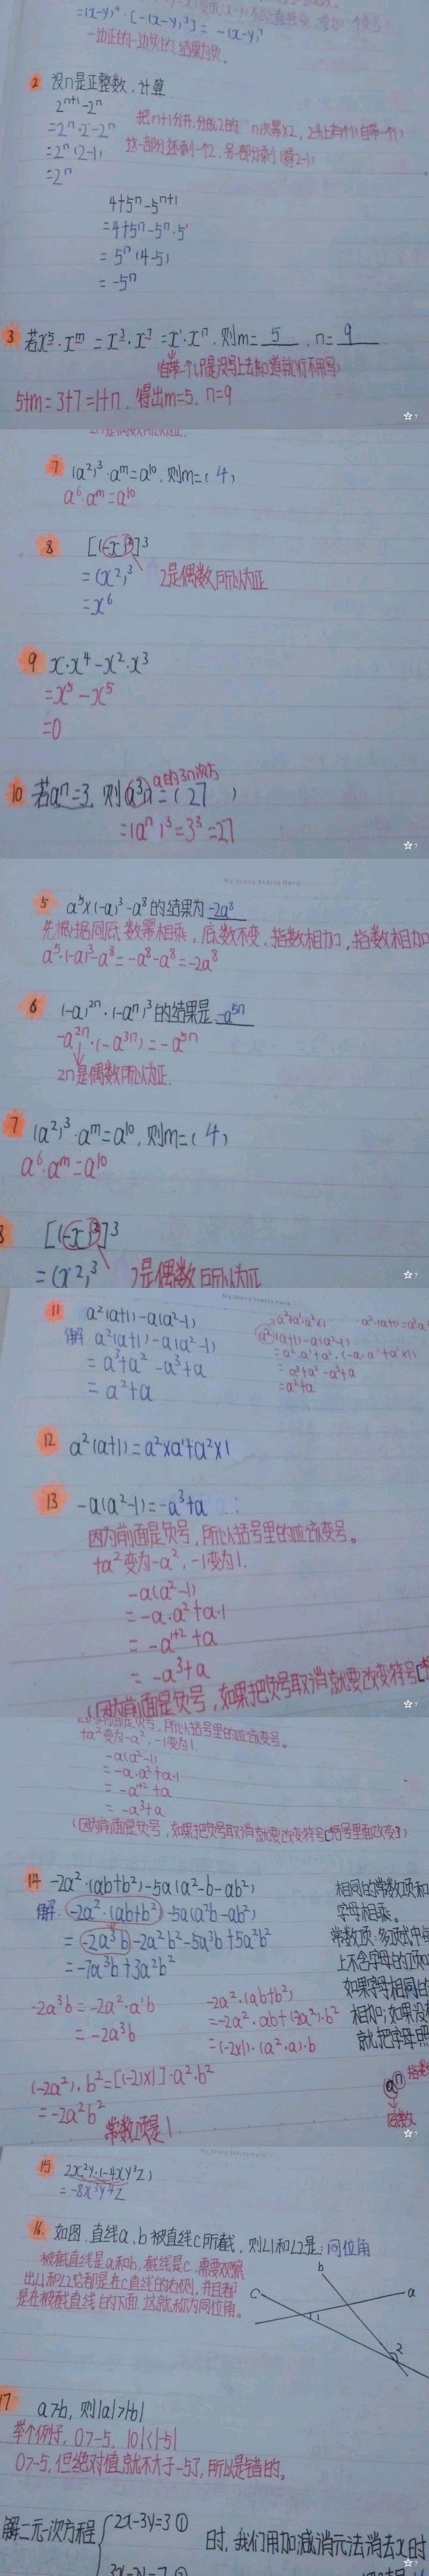 =(x-y)⁴·[-(x-y)³]=-(x-y)⁷
一边正的一边负的,结果为负。
2 设n是正整数,计算
2ⁿ⁺¹-2ⁿ
=2ⁿ·2-2ⁿ
=2ⁿ(2-1)
=2ⁿ
把n+1分开,分成2的n次幂×2
这一部分还剩一个2,另一部分剩1得2-1
4+5ⁿ-5ⁿ⁺¹
=4+5ⁿ-5ⁿ·5
=5ⁿ(4-5)
=-5ⁿ
3 若x⁵·xᵐ=x³·x⁷=x¹·xⁿ,则m=5,n=9
5+m=3+7=1+n,得出m=5,n=9
7 (a²)³·aᵐ=a¹⁰,则m=(4)
a⁶·aᵐ=a¹⁰
8 [(-x)²]³
=(x²)³ 2是偶数所以为正
=x⁶
9 x·x⁴-x²·x³
=x⁵-x⁵
=0
a的3n次方
10 若aⁿ=3,则a³ⁿ=(27)
=(aⁿ)³=3³=27
My Story Starts Here
5 a⁵×(-a)³-a⁸的结果为-2a⁸
先根据同底数幂相乘,底数不变,指数相加,指数相加
a⁵·(-a)³-a⁸=-a⁸-a⁸=-2a⁸
6 (-a)²ⁿ·(-aⁿ)³的结果是-a⁵ⁿ
-a²ⁿ·(-a³ⁿ)=-a⁵ⁿ
2n是偶数所以为正.
7 (a²)³·aᵐ=a¹⁰,则m=(4)
a⁶·aᵐ=a¹⁰
8 [(-x)²]³
=(x²)³ 2是偶数所以为正
My Story Starts Here
11 a²(a+1)-a(a²-1)
解:a²(a+1)-a(a²-1)
=a³+a²-a³+a
=a²+a
a²(a+1)-a(a²-1)
=a³+a²-a³+a
=a²+a
12 a²(a+1)=a²×a¹+a²×1
13 -a(a²-1)=-a³+a
因为前面是负号,所以括号里的应该变号。
+a²变为-a²,-1变为1.
-a(a²-1)
=-a·a²+a·1
=-a¹⁺²+a
=-a³+a
(因为前面是负号,如果把负号取消就要改变符号[括
前面是负号,所以括号里的应该变号。
+a²变为-a²,-1变为1.
-a(a²-1)
=-a·a²+a·1
=-a¹⁺²+a
=-a³+a
(因为前面是负号,如果把负号取消就要改变符号[括号里面改变])
14 -2a²·(ab+b²)-5a(a²b-ab²)
解:-2a²·(ab+b²)-5a(a²b-ab²)
=-2a³b-2a²b²-5a³b+5a²b²
=-7a³b+3a²b²
相同的常数项和
字母相乘。
常数项:多项式中每
上不含字母的项叫
如果字母相同的
相加;如果没
就把字母照
-2a³b=-2a²·a¹b
=-2a³b
-2a²·(ab+b²)
=-2a²·ab+(-2a²)·b²
=(-2×1)·(a²·a)·b
(-2a²)·b²=[(-2)×1]·a²·b²
=-2a²b²
常数项是1
aⁿ 指数
底数
15 2x²y·(-4xy³z)
=-8x³y⁴z
16. 如图,直线a、b被直线c所截,则∠1和∠2是:同位角
被截直线是a和b,截线是c,需要观察
出∠1和∠2它都是在c直线的右侧,并且都
是在被截直线的下面,这就称为同位角。
b
c
a
1
2
17 a>b,则|a|>|b|
举个例子,0>-5,|0|<|-5|
0>-5,但绝对值就不大于-5了,所以是错的。
解二元一次方程{2x-3y=3① 时,我们用加减消元法消去x时